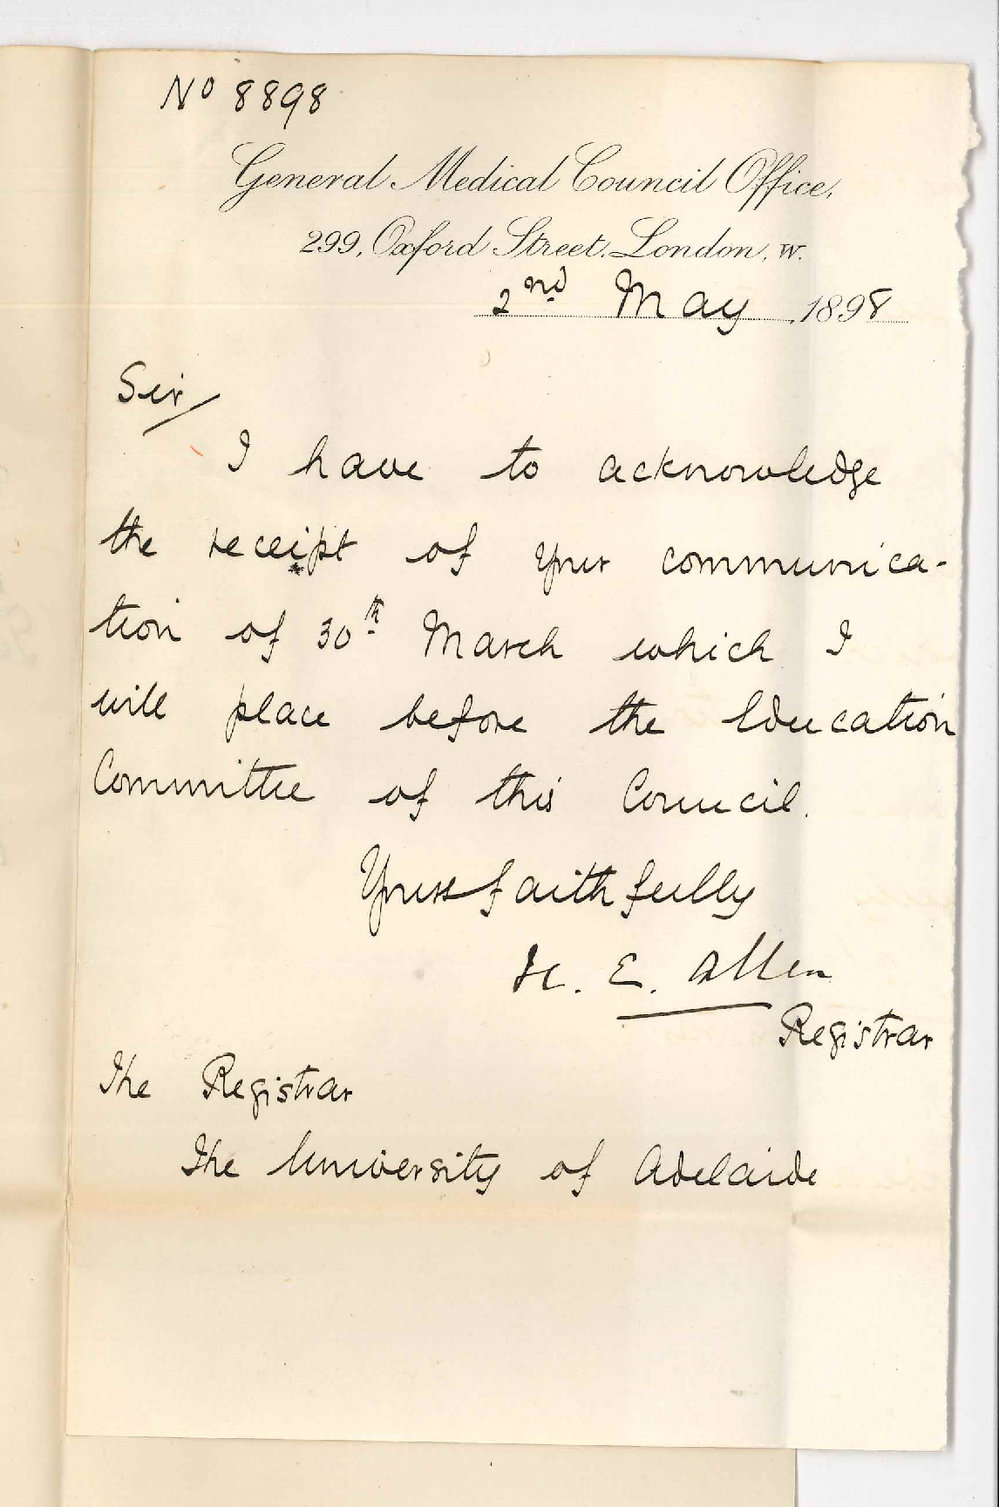 No 8898
General Medical Council Office,
299, Oxford Street, London, W.
2nd May 1898
Sir/
I have to acknowledge
the receipt of your communica-
tion of 30th March which I
will place before the Education
Committee of this Council.
Yours faithfully
H. E. Allen
Registrar
The Registrar
The University of Adelaide